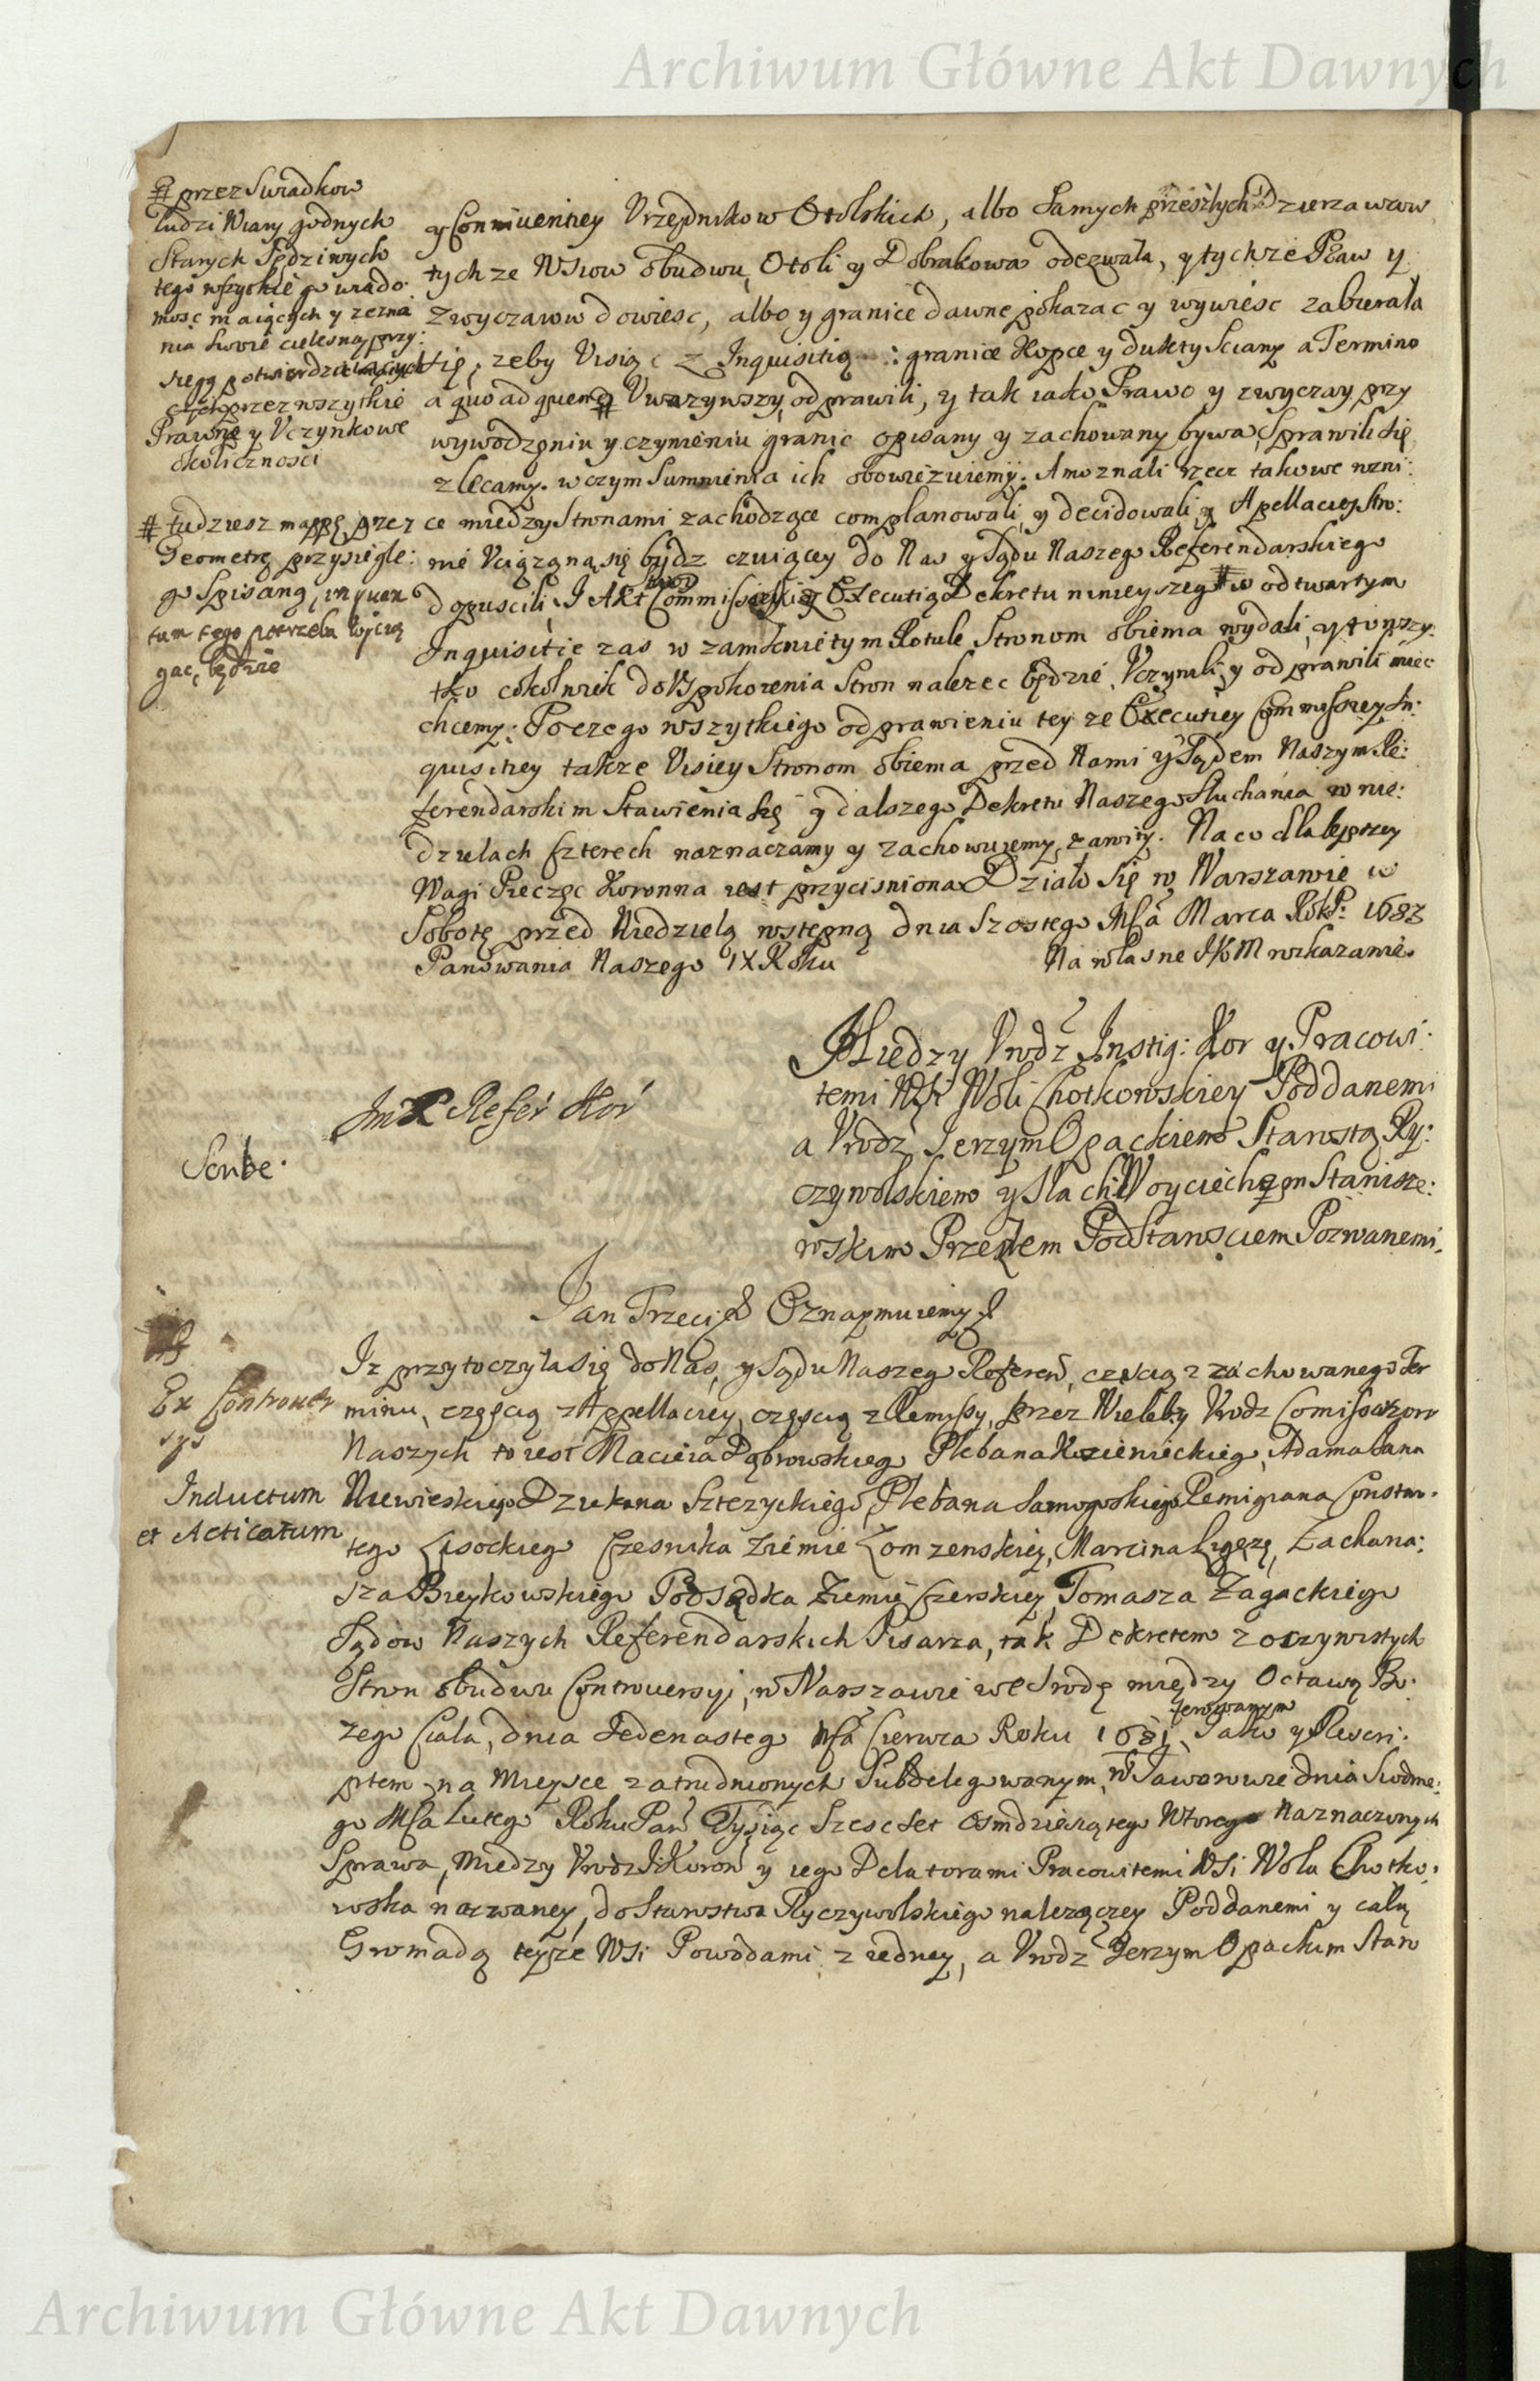 Archiwum Główne Akt Dawnych
# przez Swiadkow
ludzi Wiary godnych
Starych Sędziwych
tego wszytkie go wiado:
mosc maiących y zezna
nia swoie cielesną przy:
sięgą potwierdzaiących
przez wszytkie
Prawne y Vczynkowe
okolicznosci
# tudziesz mappę przez
Geometrę przysięgłe:
go Spisaną, inquan
tum tego potrzeba wycią
gac, będzie
y Conniuentiey Vrzędnikow Otolskich, albo samych przeszłych Dzierzawcow
tych ze Wsiow obudwu, Otoli y Dobrakowa odezwała, y tychze Praw y
zwyczaiow dowiesc, albo y granice dawne pokazac y wywiesc zabierała
się, zeby Visią z Inquisitią granice Kopce y dukty Sciany a Termino
a quo ad quem # Vwazywszy, odprawili, y tak iako Prawo y zwyczay przy
wywodzeniu y czynieniu granic opisany y zachowany bywa, Sprawili się
zlecamy. w czym Sumnienia ich obowięzuiemy. A moznali rzecz takowe rozni:
ce miedzy Stronami zachodzące complanowali, y decidowali, y Apellaciey Stro:
nie Vciązoną się bydz czuiącey do Nas y Sądu Naszego Referendarskiego
dopuscili, I Akt Commissiey y Executią Dekretu ninieyszeg # w odtwartym
Inquisitie zas w zamknietym Rotule Stronom obiema wydali, y to wszy:
tko cokolwiek do Vspokoienia Stron nalezec będzie, Vczynili, y odprawili miec
chcemy. Po czego wszytkiego odprawieniu tey ze Executiey Commissiey In:
quisitiey takze Visiey Stronom obiema przed Nami y Sądem Naszym Re:
ferendarskim Stawienia się y dalszego Dekretu Naszego Słuchania w nie:
dzielach czterech naznaczamy y zachowuiemy, zawity. Na co dla lepszey
Wagi Pieczęc Koronna iest przycisniona Działo się w Warszawie w
Sobotę przed Niedzielą wstępną dnia Szostego Msca Marca RokP: 1683
Panowania Naszego IX Roku
Na własne JKM rozkazanie.
Miedzy Vrodz Instig: Kor y Pracowi:
temi Wsi Woli Chotkowskiey Poddanemi
a Vrodz Ierzym Opackiem Starostą Ry:
czywolskiem y Slach Woyciechem Stanisze:
wskim Przeszłem Podstarosciem Pozwanemi.
Im X Refer Kor
Scribe.
Jan Trzeci Oznaymuiemy
Ex Controuer
sys
Inductum
et Acticatum
Iz przytoczyła się do Nas, y Sądu Naszego Referen, częscią z zachowanego Ter
minu, częscią z Appellaciey, częscią z Remissy, przez Wieleby Vrodz Comissarzow
Naszych to iest Macieia Dąbrowskiego Plebana Kozienickiego, Adama Jana
Niewieskiego Dziekana Stezyckiego, Plebana Remigiana Constan:
tego Lisockiego Czesnika Ziemie Łomzenskiey, Marcina Ligęzę, Zacharia:
sza Boeykowskiego Podsądka Ziemie Czerskiey, Tomasza Zagackiego
Sądow Naszych Referendarskich Pisarza, tak Dekretem z oczywistych
Stron obudwu Controuersyi, w Warszawie we Srodę między Octawą Bo:
zego Ciała, dnia Iedenastego Msca Czerwca Roku 1681, Jako y Rescri:
ferowanym
ptem na Mieysce zatrudnionych Subdelegowanym, w Iaworowie dnia Siodme:
go Msca Lutego Roku Pan Tysiąc Szescset osmdziesiątego Wtorego naznaczonych
Sprawa, Miedzy Vrodz I Koron y iego Delatorami Pracowitemi Wsi Wola Chotko:
wska nazwaney, do Starostwa Ryczywolskiego nalezączey Poddanemi y całą
Gromadą teyze Wsi Powodami, z iedney, a Vrodz Ierzym Opackim Staro
Archiwum Główne Akt Dawnych